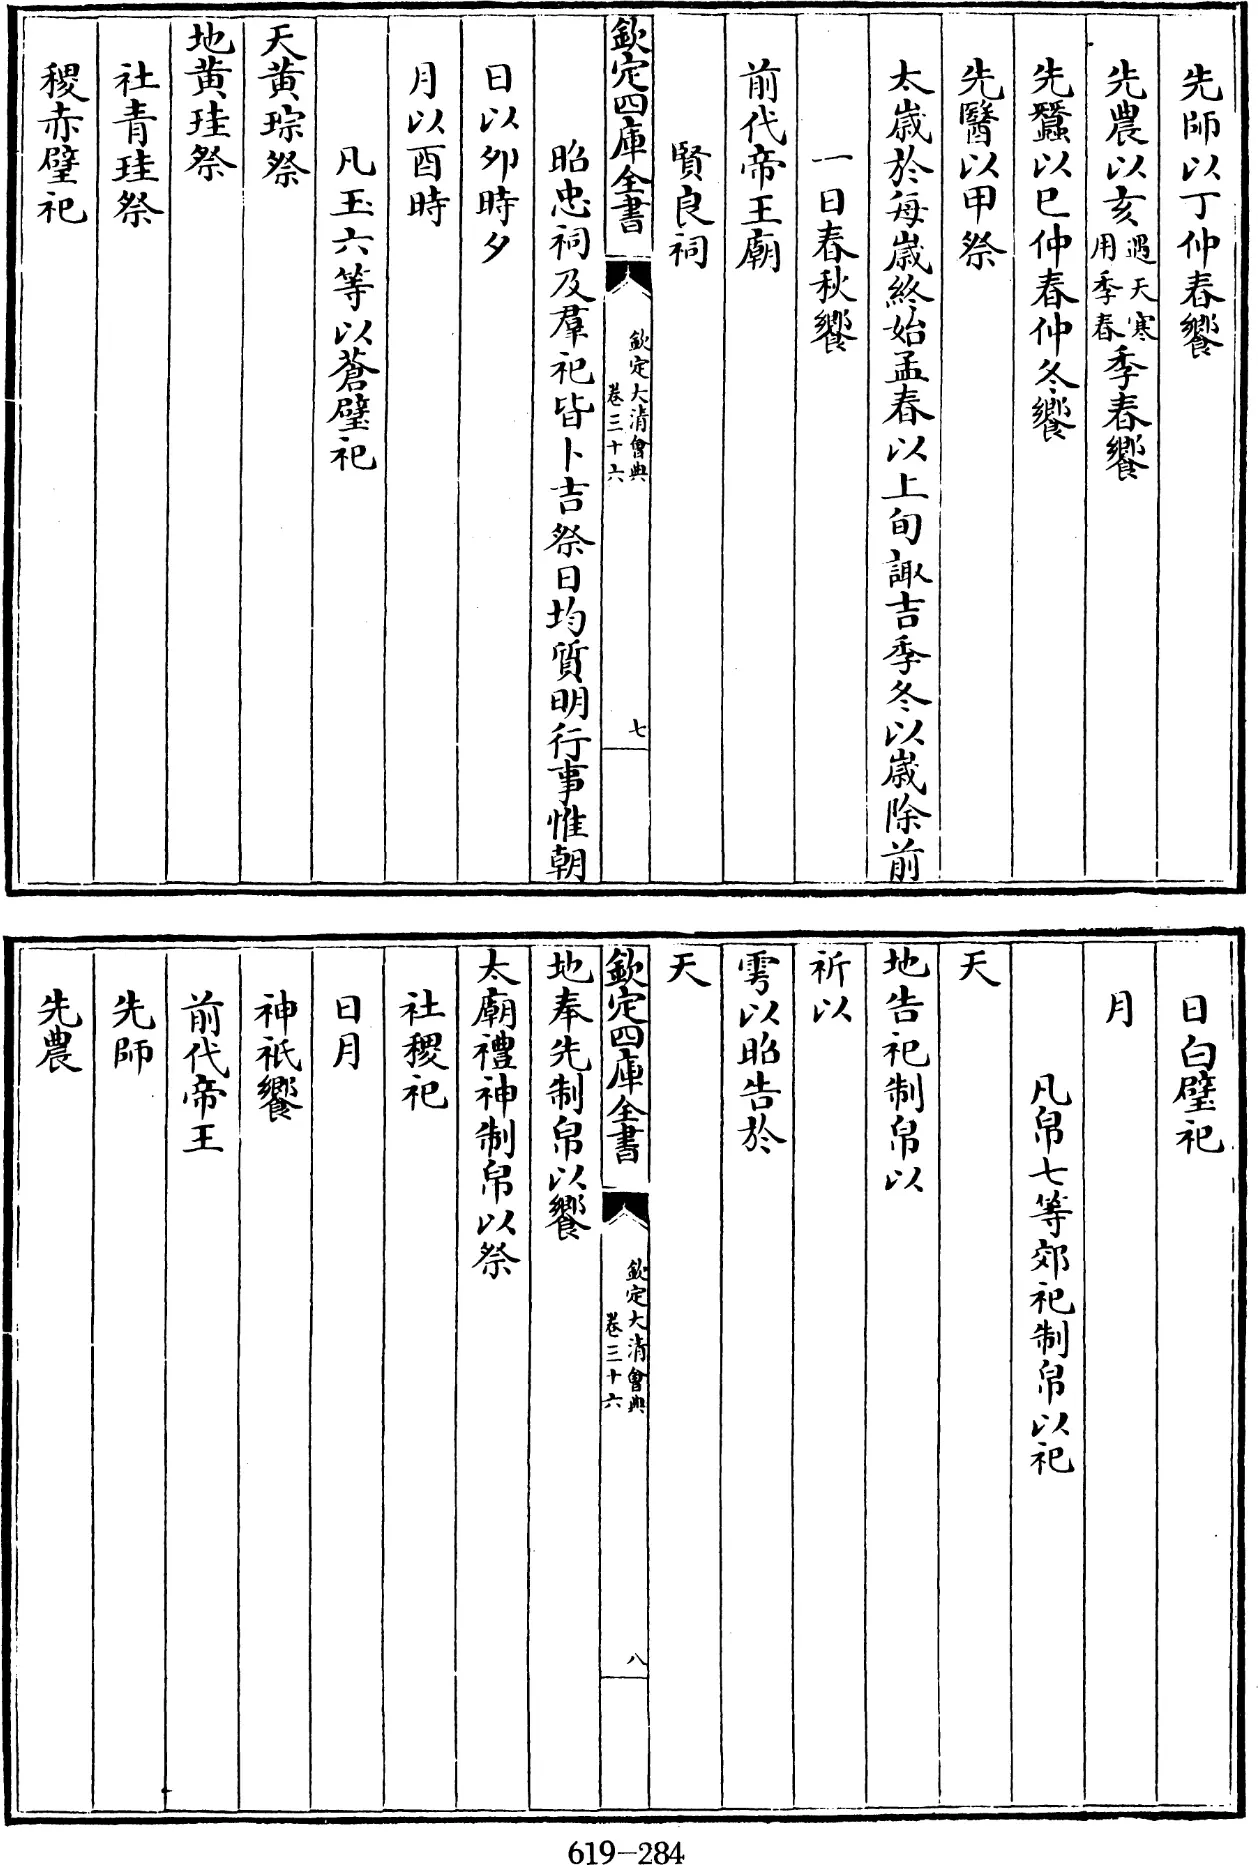 先師以丁仲春饗
先農以亥遇天寒用季春季春饗
先蠶以巳仲春仲冬饗
先醫以甲祭
太歲於每歲終始孟春以上旬諏吉季冬以歲除前
一日春秋饗
前代帝王廟
賢良祠
欽定四庫全書
欽定大清會典
卷三十六
七
昭忠祠及羣祀皆卜吉祭日均質明行事惟朝
日以夘時夕
月以酉時
凡玉六等以蒼璧祀
天黃琮祭
地黃珪祭
社青珪祭
稷赤璧祀
日白璧祀
月
凡帛七等郊祀制帛以祀
天
地告祀制帛以
祈以
雩以昭告於
天
欽定四庫全書
欽定大清會典
卷三十六
八
地奉先制帛以饗
太廟禮神制帛以祭
社稷祀
日月
神祇饗
前代帝王
先師
先農
619-284